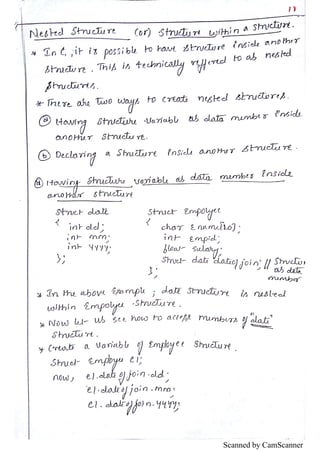 17
Nested Structure (or) Structure within a Structure.
* In C, it is possible to have structure inside another
structure. This is technically reffered to as nested
structures.
* There are two ways to create nested structures.
ⓐ Having structure variable as data member inside
another structure.
ⓑ Declaring a structure inside another structure.
ⓐ Having structure variable as data member inside
another structure
struct date
{
int dd;
int mm;
int yyyy;
};
struct Empolyee
{
char Ename[20];
int Empid;
float salary;
struct date dateofjoin; // structure
as data
member
};
* In the above Example; date structure is nested
within Empolyee structure.
* Now let us see how to access members of date
structure.
* Create a variable of Employee structure.
Struct Employee e1;
now, e1.dateofjoin.dd;
e1.dateofjoin.mm;
e1.dateofjoin.yyyy;
Scanned by CamScanner